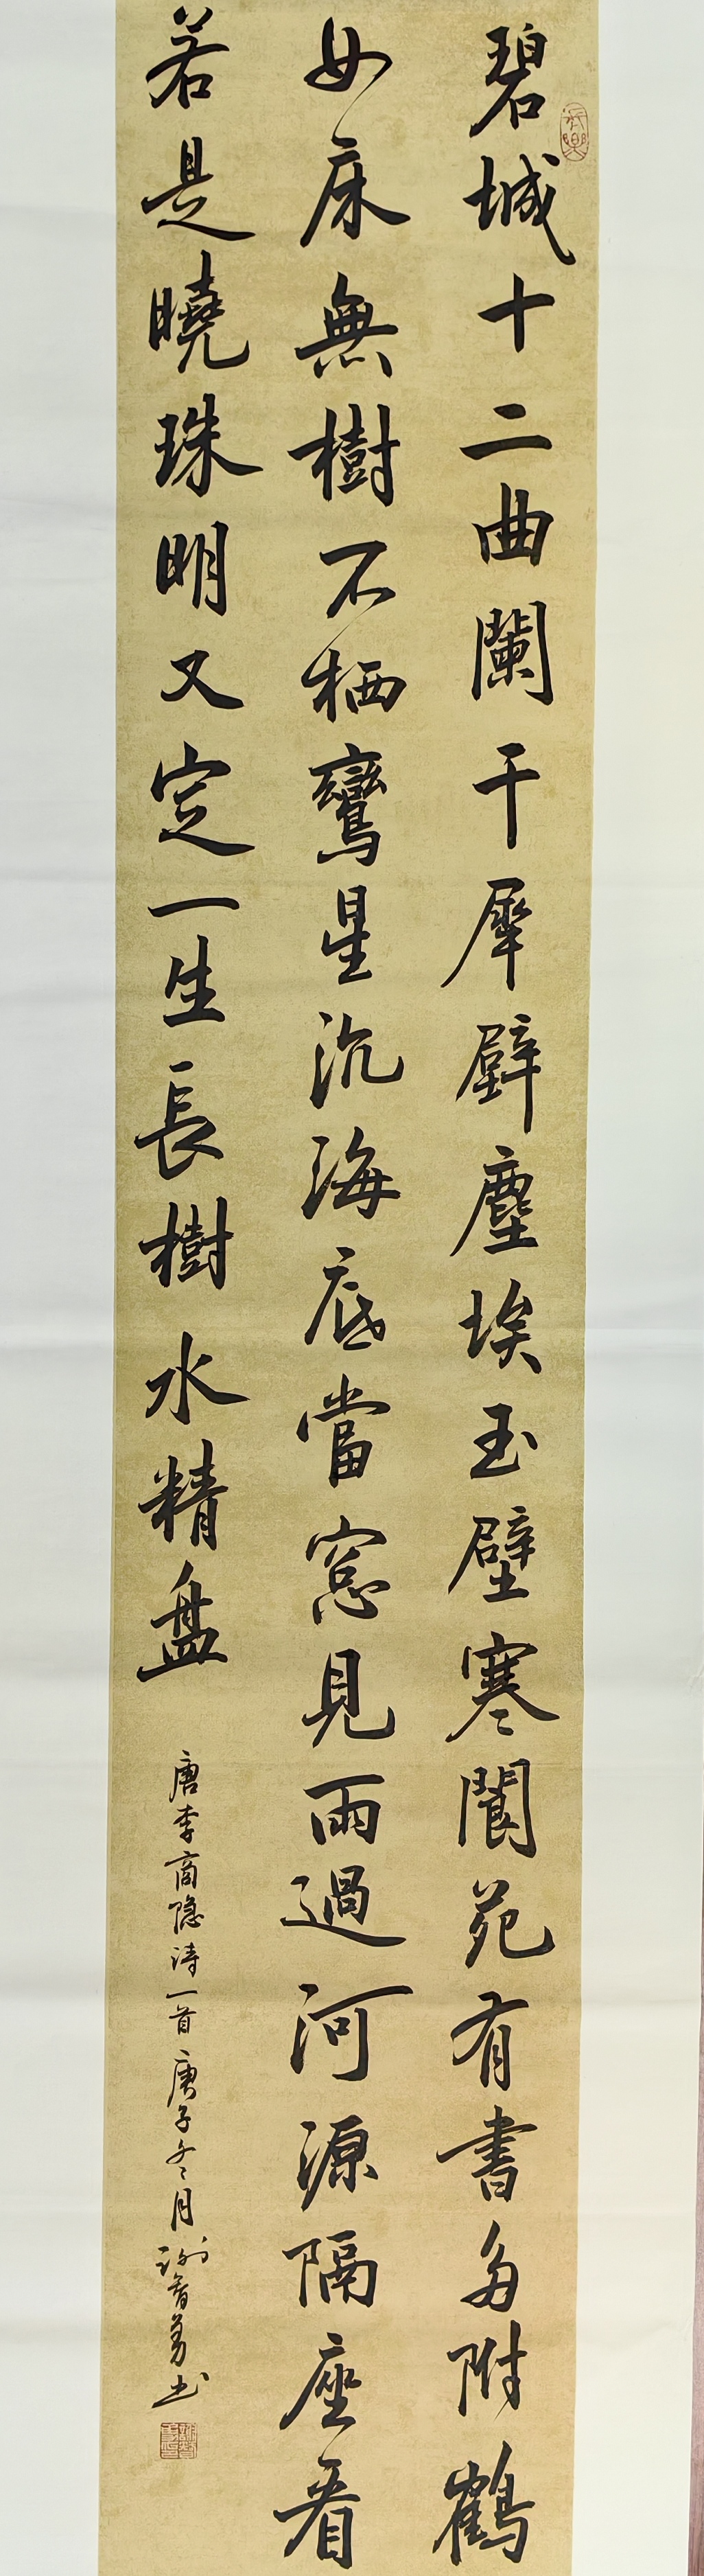 碧城十二曲闌干犀辟塵埃玉壁寒閬苑有書多附鶴
女床無樹不栖鸞星沉海底當窓見雨過河源隔座看
若是曉珠明又定一生長樹水精盤
唐李商隐诗一首庚子冬月谢智勇书